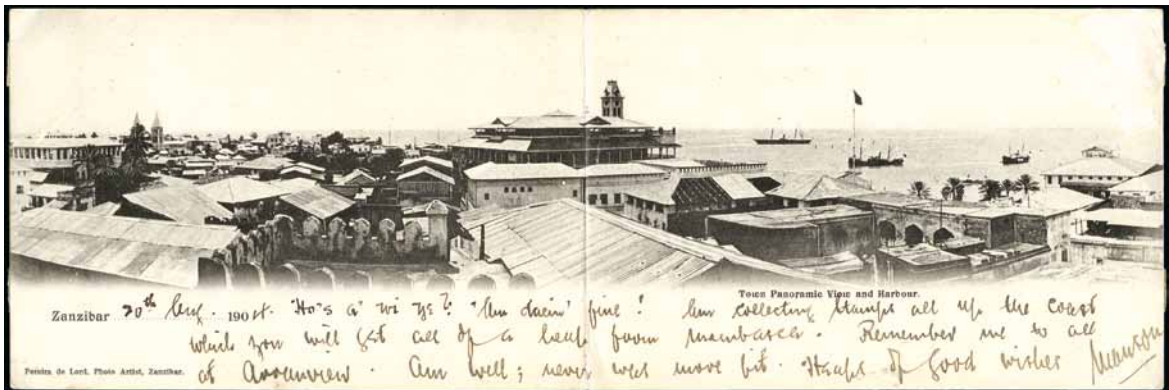 Town Panoramic View and Harbour.
Zanzibar 20th Aug. 1904. "Ho's a' wi ye?" "Am daein' fine! Am collecting stamps all up the coast
which you will get all of a heap from Mombassa. Remember me to all
at Arranview. Am well; never was more fit. Heaps of good wishes Manson
Pereira de Lord, Photo Artist, Zanzibar.